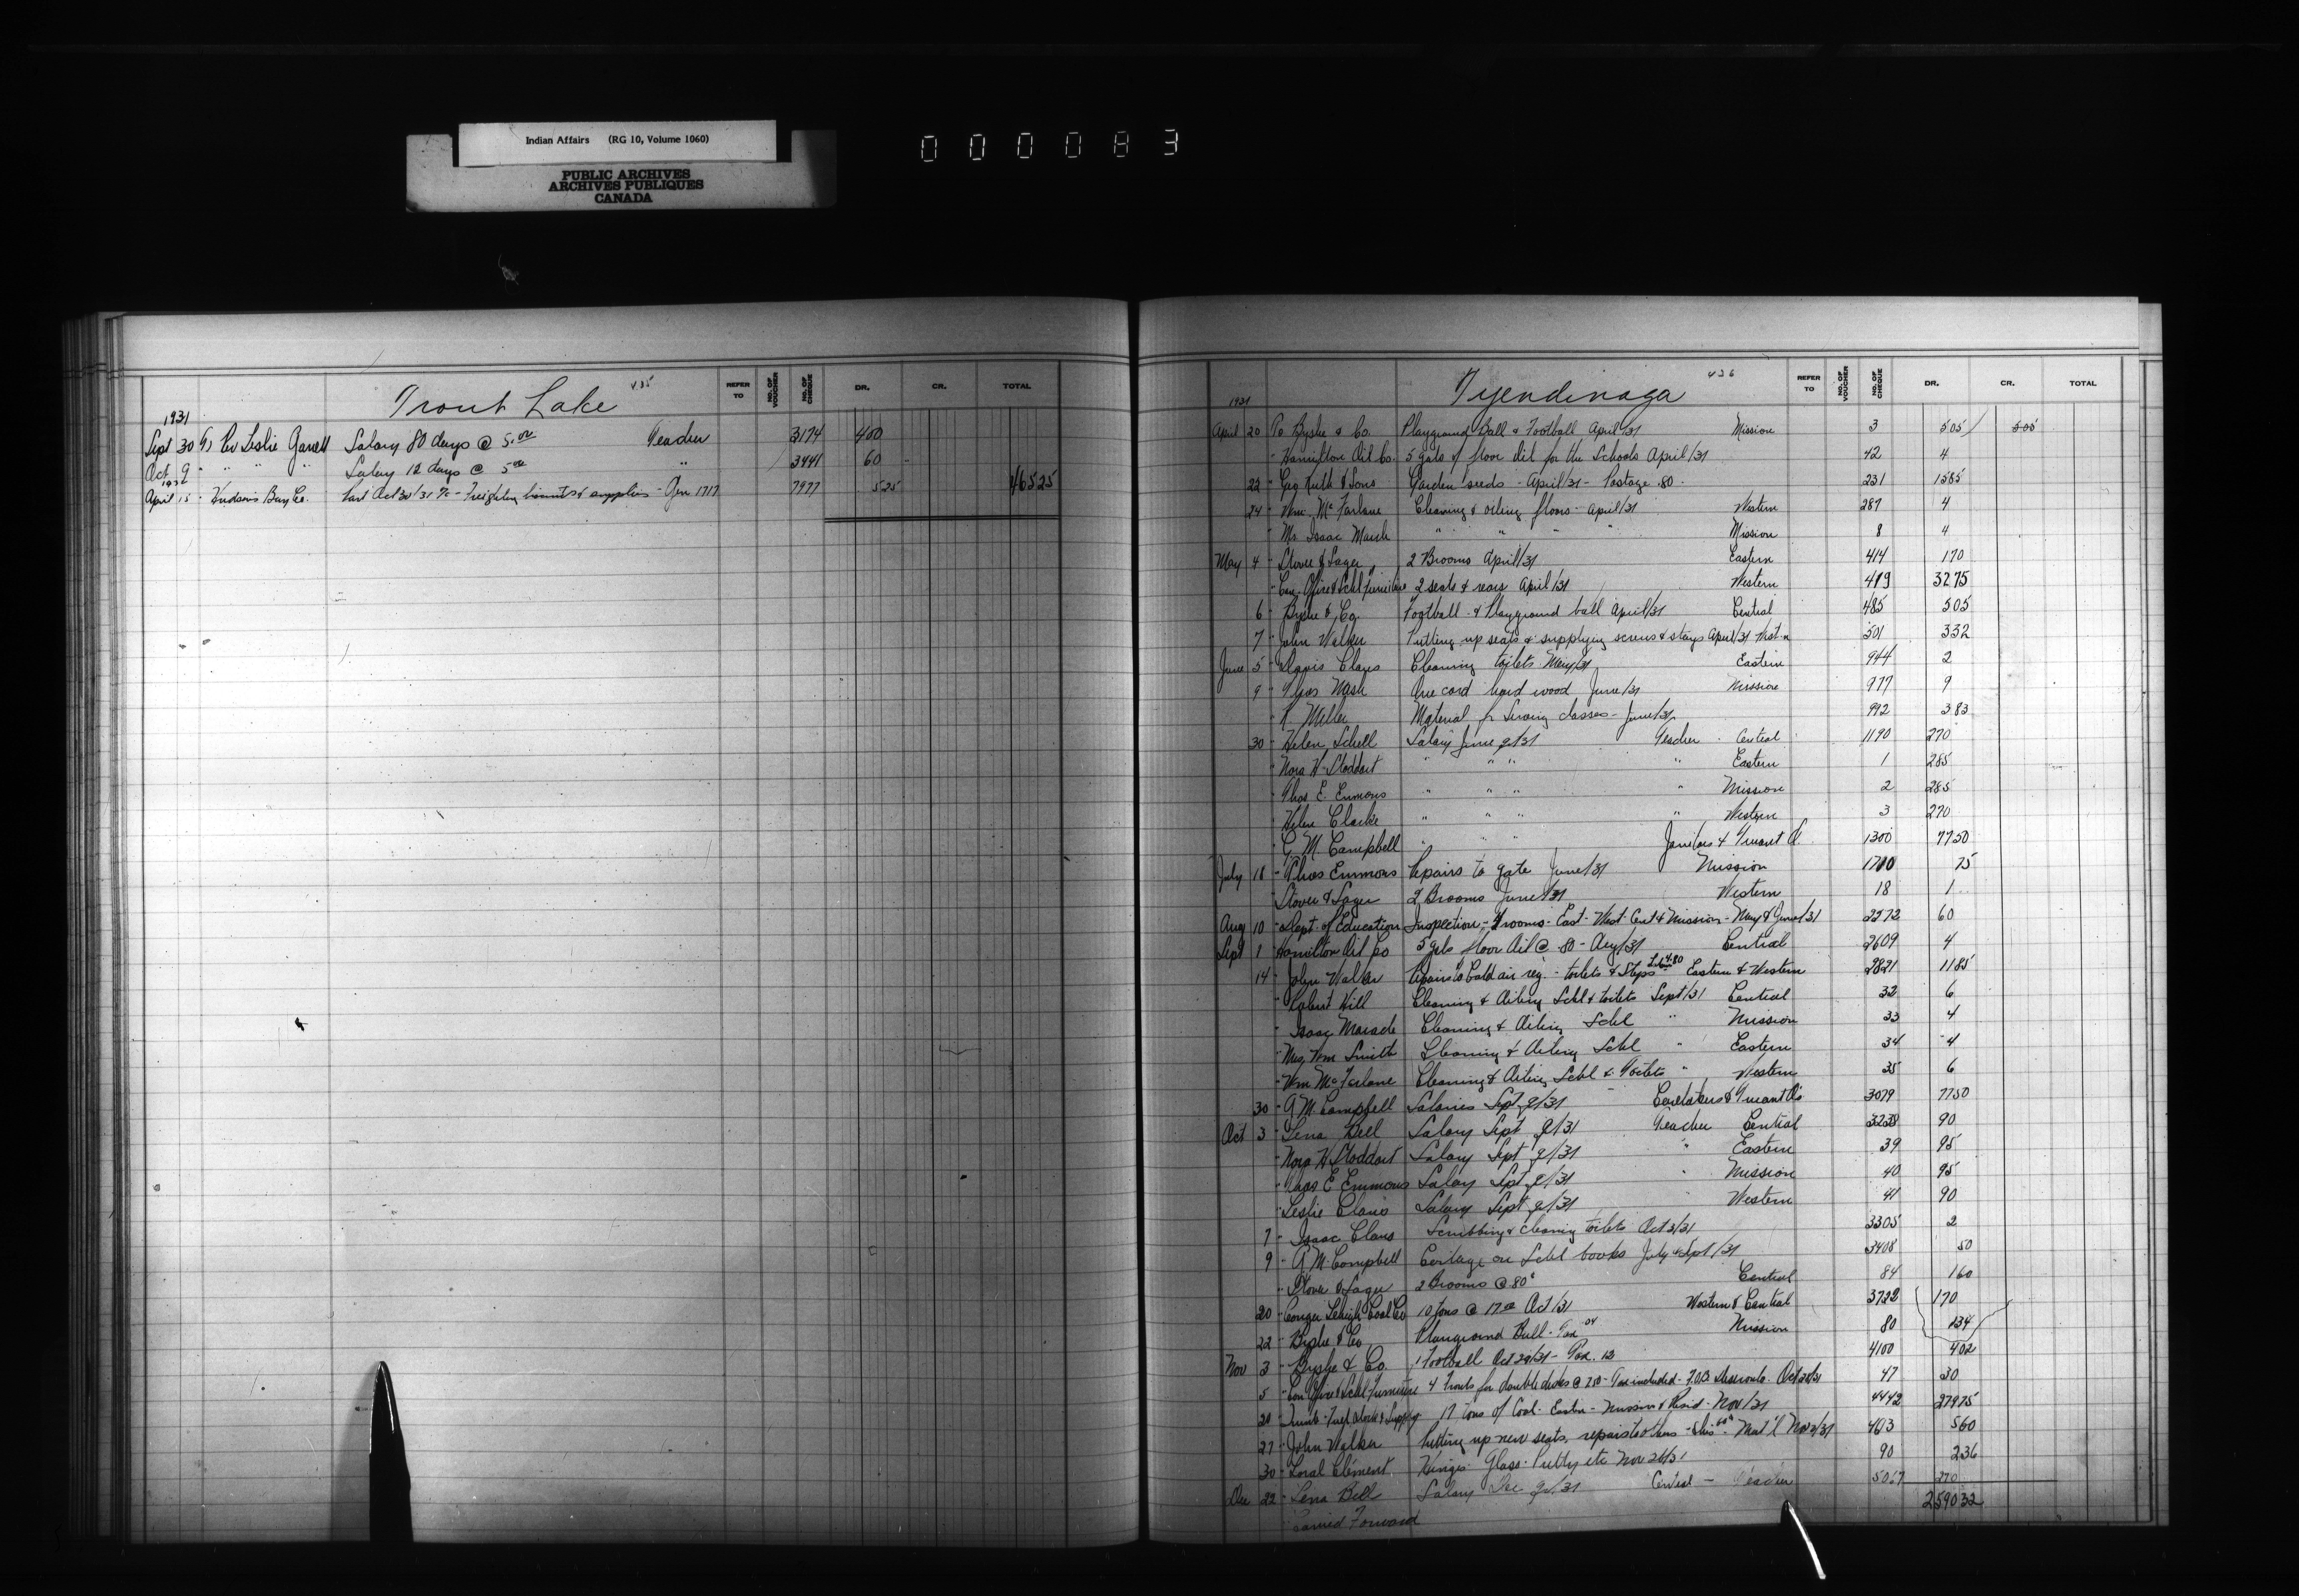 Indian Affairs (RG 10, Volume 1060)
PUBLIC ARCHIVES
ARCHIVES PUBLIQUES
CANADA
000083
Trout Lake 435
REFER TO NO. OF VOUCHER NO. OF CHEQUE DR. CR. TOTAL
1931
Sept 30 Rev Leslie Garrett Salary 80 days @ 5.00 Teacher 3174 400
Oct 9 " " " " Salary 12 days @ 5.00 " 3441 60
1932
April 15 - Hudson's Bay Co. Oct 30/31 - Freighting & supplies - 1717 7977 525 46525
Tyendinaga 436
REFER TO NO. OF VOUCHER NO. OF CHEQUE DR. CR. TOTAL
1931
April 20 To Bryshe & Co. Playground Ball & Football April/31 Mission 3 505 505
- Hamilton Oil Co. 5 gals of floor Oil for the Schools April/31 42 4
22 - Geo Keith & Sons Garden seeds - April/31 - Postage .80 231 1585
24 - Wm McFarlane Cleaning & oiling floors - April/31 Western 287 4
- Mr Isaac Marsh " " " " Mission 8 4
May 4 - Stover & Sager 2 Brooms April/31 Eastern 414 170
- Can. Office & Schl Furniture 2 seats & rears April/31 Western 419 3275
6 - Bryshe & Co. Football & Playground ball April/31 Central 485 505
7 - John Walker Putting up seats & supplying screws & stays April/31 501 332
June 5 - Claus Cleaning toilets May/31 Eastern 944 2
9 - Thos Nash One cord hard wood June/31 Mission 977 9
- Miller Material for Sewing classes - June/31 992 383
30 - Helen Schell Salary June q/31 Teacher Central 1190 270
- Nora H. Stoddart " " " " Eastern 1 285
- Thos E. Emmons " " " " Mission 2 285
- Helen Clarke " " " " Western 3 270
- G. M. Campbell " " " Janitors & Truant O. 1300 7750
July 18 - Thos Emmons Repairs to gate June/31 Mission 1710 75
- Stover & Sager 2 Brooms June/31 Western 18 1
Aug 10 - Dept. of Education Inspection - 4 rooms - East - West Cent & Mission - May & June/31 2272 60
Sept 1 Hamilton Oil Co 5 gals floor Oil @ 80 - Aug/31 Central 2609 4
14 - John Walker Repairs to Cold air reg. - toilets & Steps Eastern & Western 2821 1185
- Robert Hill Cleaning & Oiling Schl & toilets Sept/31 Central 32 6
- Isaac Maracle Cleaning & Oiling Schl " Mission 33 4
- Mrs Wm Smith Cleaning & Oiling Schl " Eastern 34 4
- Wm McFarlane Cleaning & Oiling Schl & Toilets " Western 35 6
30 - G M. Campbell Salaries Sept q/31 Caretakers & Truant O's 3079 7750
Oct 3 - Lena Bell Salary Sept q/31 Teacher Central 3238 90
- Nora H Stoddart Salary Sept q/31 " Eastern 39 95
- Thos E Emmons Salary Sept q/31 " Mission 40 95
- Leslie Claus Salary Sept q/31 " Western 41 90
7 - Isaac Claus Scrubbing & cleaning toilets Oct 3/31 3305 2
9 - G M. Campbell Cartage on Schl books July & Sept/31 3408 50
- Stover & Sager 2 Brooms @ 80¢ Central 84 160
20 - Conger Lehigh Coal Co 10 tons @ 17.00 Oct/31 Western & Central 3722 170
22 - Bryshe & Co Playground Ball - Tax .04 Mission 80 134
Nov 3 - Bryshe & Co. 1 Football Oct 29/31 - Tax. 12 4100 402
5 - Can Office & Schl Furniture 4 fronts for double desks @ 750 - Tax included - F.O.B. Deseronto - Oct 28/31 47 30
20 - Fuel Stock & Supply 17 tons of Coal - Mission & Resid - Nov/31 4442 27975
27 - John Walker Putting up new seats, repairs - Mat'l Nov /31 463 560
30 - Loral Clement Hinges - Glass - Putty etc Nov 26/31 90 236
Dec 22 - Lena Bell Salary Dec q/31 Central - Teacher 5067 270
Carried Forward 259032